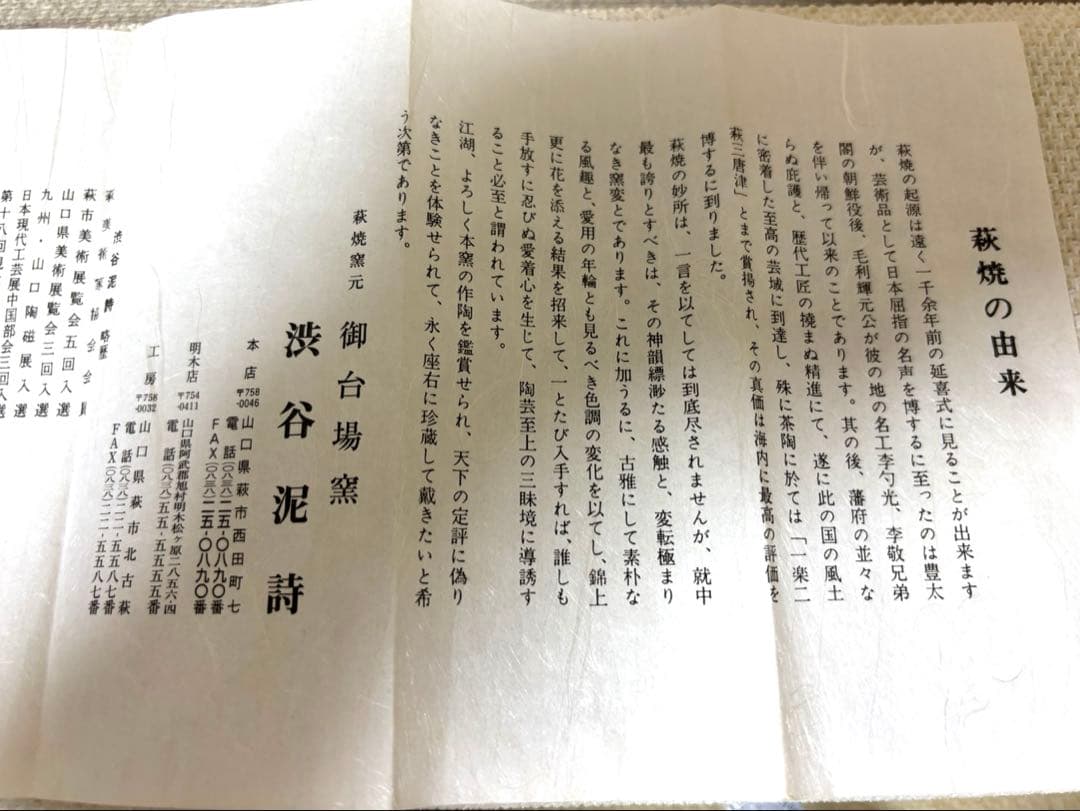 萩焼の由来
萩焼の起源は遠く一千余年前の延喜式に見ることが出来ます
が、芸術品として日本屈指の名声を博するに至ったのは豊太
閤の朝鮮役後、毛利輝元公が彼の地の名工李勺光、李敬兄弟
を伴い帰って以来のことであります。其の後、藩府の並々な
らぬ庇護と、歴代工匠の撓まぬ精進にて、遂に此の国の風土
に密着した至高の芸域に到達し、殊に茶陶に於ては「一楽二
萩三唐津」とまで賞揚され、その真価は海内に最高の評価を
博するに到りました。
萩焼の妙所は、一言を以てしては到底尽されませんが、就中
最も誇りとすべきは、その神韻縹渺たる感触と、変転極まり
なき窯変とであります。これに加うるに、古雅にして素朴な
る風趣と、愛用の年輪とも見るべき色調の変化を以てし、錦上
更に花を添える結果を招来して、一とたび入手すれば、誰しも
手放すに忍びぬ愛着心を生じて、陶芸至上の三昧境に導誘す
ること必至と謂われています。
江湖、よろしく本窯の作陶を鑑賞せられ、天下の定評に偽り
なきことを体験せられて、永く座右に珍蔵して戴きたいと希
う次第であります。
萩焼窯元 御台場窯
渋谷泥詩
本店 〒758-0046 山口県萩市西田町七
電話(〇八三八)二五-〇八九〇番
FAX(〇八三八)二五-〇八九〇番
明木店 〒754-0411 山口県阿武郡旭村明木松ヶ原二八五六-四
電話(〇八三八)五五-五五五五番
工房 〒758-0032 山口県萩市北古萩
電話(〇八三八)二二-五五八七番
FAX(〇八三八)二二-五五八七番
渋谷泥詩略歴
萩美術家協会会員
萩市美術展覧会五回入選
山口県美術展覧会三回入選
九州・山口陶磁展入選
日本現代工芸展中国部会三回入選
第十八回